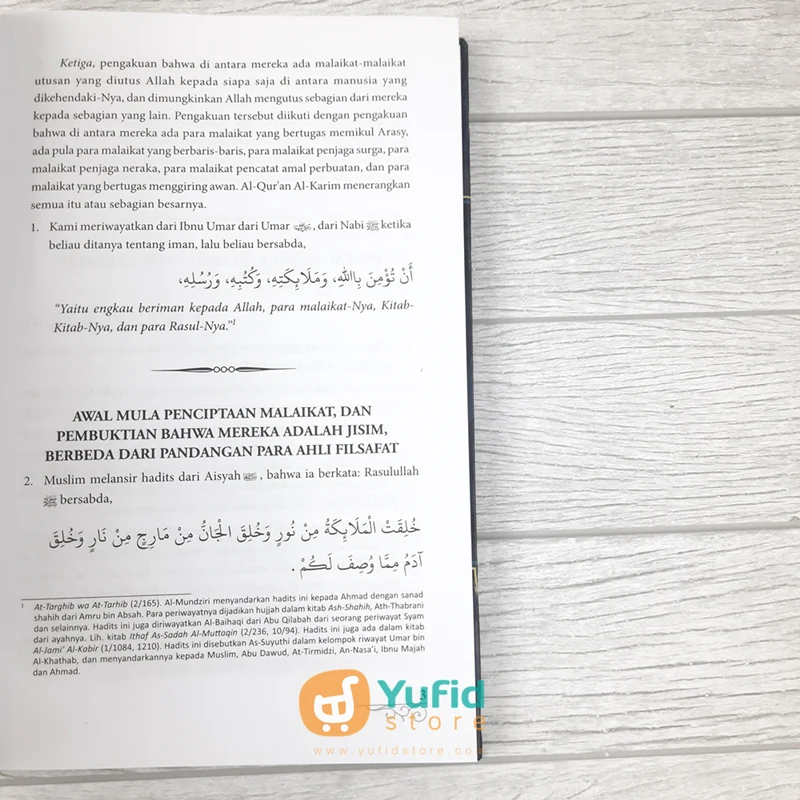 Ketiga, pengakuan bahwa di antara mereka ada malaikat-malaikat
utusan yang diutus Allah kepada siapa saja di antara manusia yang
dikehendaki-Nya, dan dimungkinkan Allah mengutus sebagian dari mereka
kepada sebagian yang lain. Pengakuan tersebut diikuti dengan pengakuan
bahwa di antara mereka ada para malaikat yang bertugas memikul Arasy,
ada pula para malaikat yang berbaris-baris, para malaikat penjaga surga, para
malaikat penjaga neraka, para malaikat pencatat amal perbuatan, dan para
malaikat yang bertugas menggiring awan. Al-Qur'an Al-Karim menerangkan
semua itu atau sebagian besarnya.
1. Kami meriwayatkan dari Ibnu Umar dari Umar, dari Nabi ﷺ ketika
beliau ditanya tentang iman, lalu beliau bersabda,
أَنْ تُؤْمِنَ بِاللهِ، وَمَلَابِكَتِهِ، وَكُتُبِهِ، وَرُسُلِهِ،
"Yaitu engkau beriman kepada Allah, para malaikat-Nya, Kitab-
Kitab-Nya, dan para Rasul-Nya."1
AWAL MULA PENCIPTAAN MALAIKAT, DAN
PEMBUKTIAN BAHWA MEREKA ADALAH JISIM,
BERBEDA DARI PANDANGAN PARA AHLI FILSAFAT
2. Muslim melansir hadits dari Aisyah, bahwa ia berkata: Rasulullah
ﷺ bersabda,
خُلِقَتْ الْمَلَابِكَةُ مِنْ نُورٍ وَخُلِقَ الْجَانُّ مِنْ مَارِجٍ مِنْ نَارٍ وَخُلِقَ
آدَمُ مِمَّا وُصِفَ لَكُمْ .
1 At-Targhib wa At-Tarhib (2/165). Al-Mundziri menyandarkan hadits ini kepada Ahmad dengan sanad
shahih dari Amru bin Absah. Para periwayatnya dijadikan hujjah dalam kitab Ash-Shahih, Ath-Thabrani
dan selainnya. Hadits ini juga diriwayatkan Al-Baihaqi dari Abu Qilabah dari seorang periwayat Syam
dari ayahnya. Lih. kitab Ithaf As-Sadah Al-Muttaqin (2/236, 10/94). Hadits ini juga ada dalam kitab
Al-Jami' Al-Kabir (1/1084, 1210). Hadits ini disebutkan As-Suyuthi dalam kelompok riwayat Umar bin
Al-Khathab, dan menyandarkannya kepada Muslim, Abu Dawud, At-Tirmidzi, An-Nasa'i, Ibnu Majah
dan Ahmad.
3
Yufid
store
www.yufidstore.com